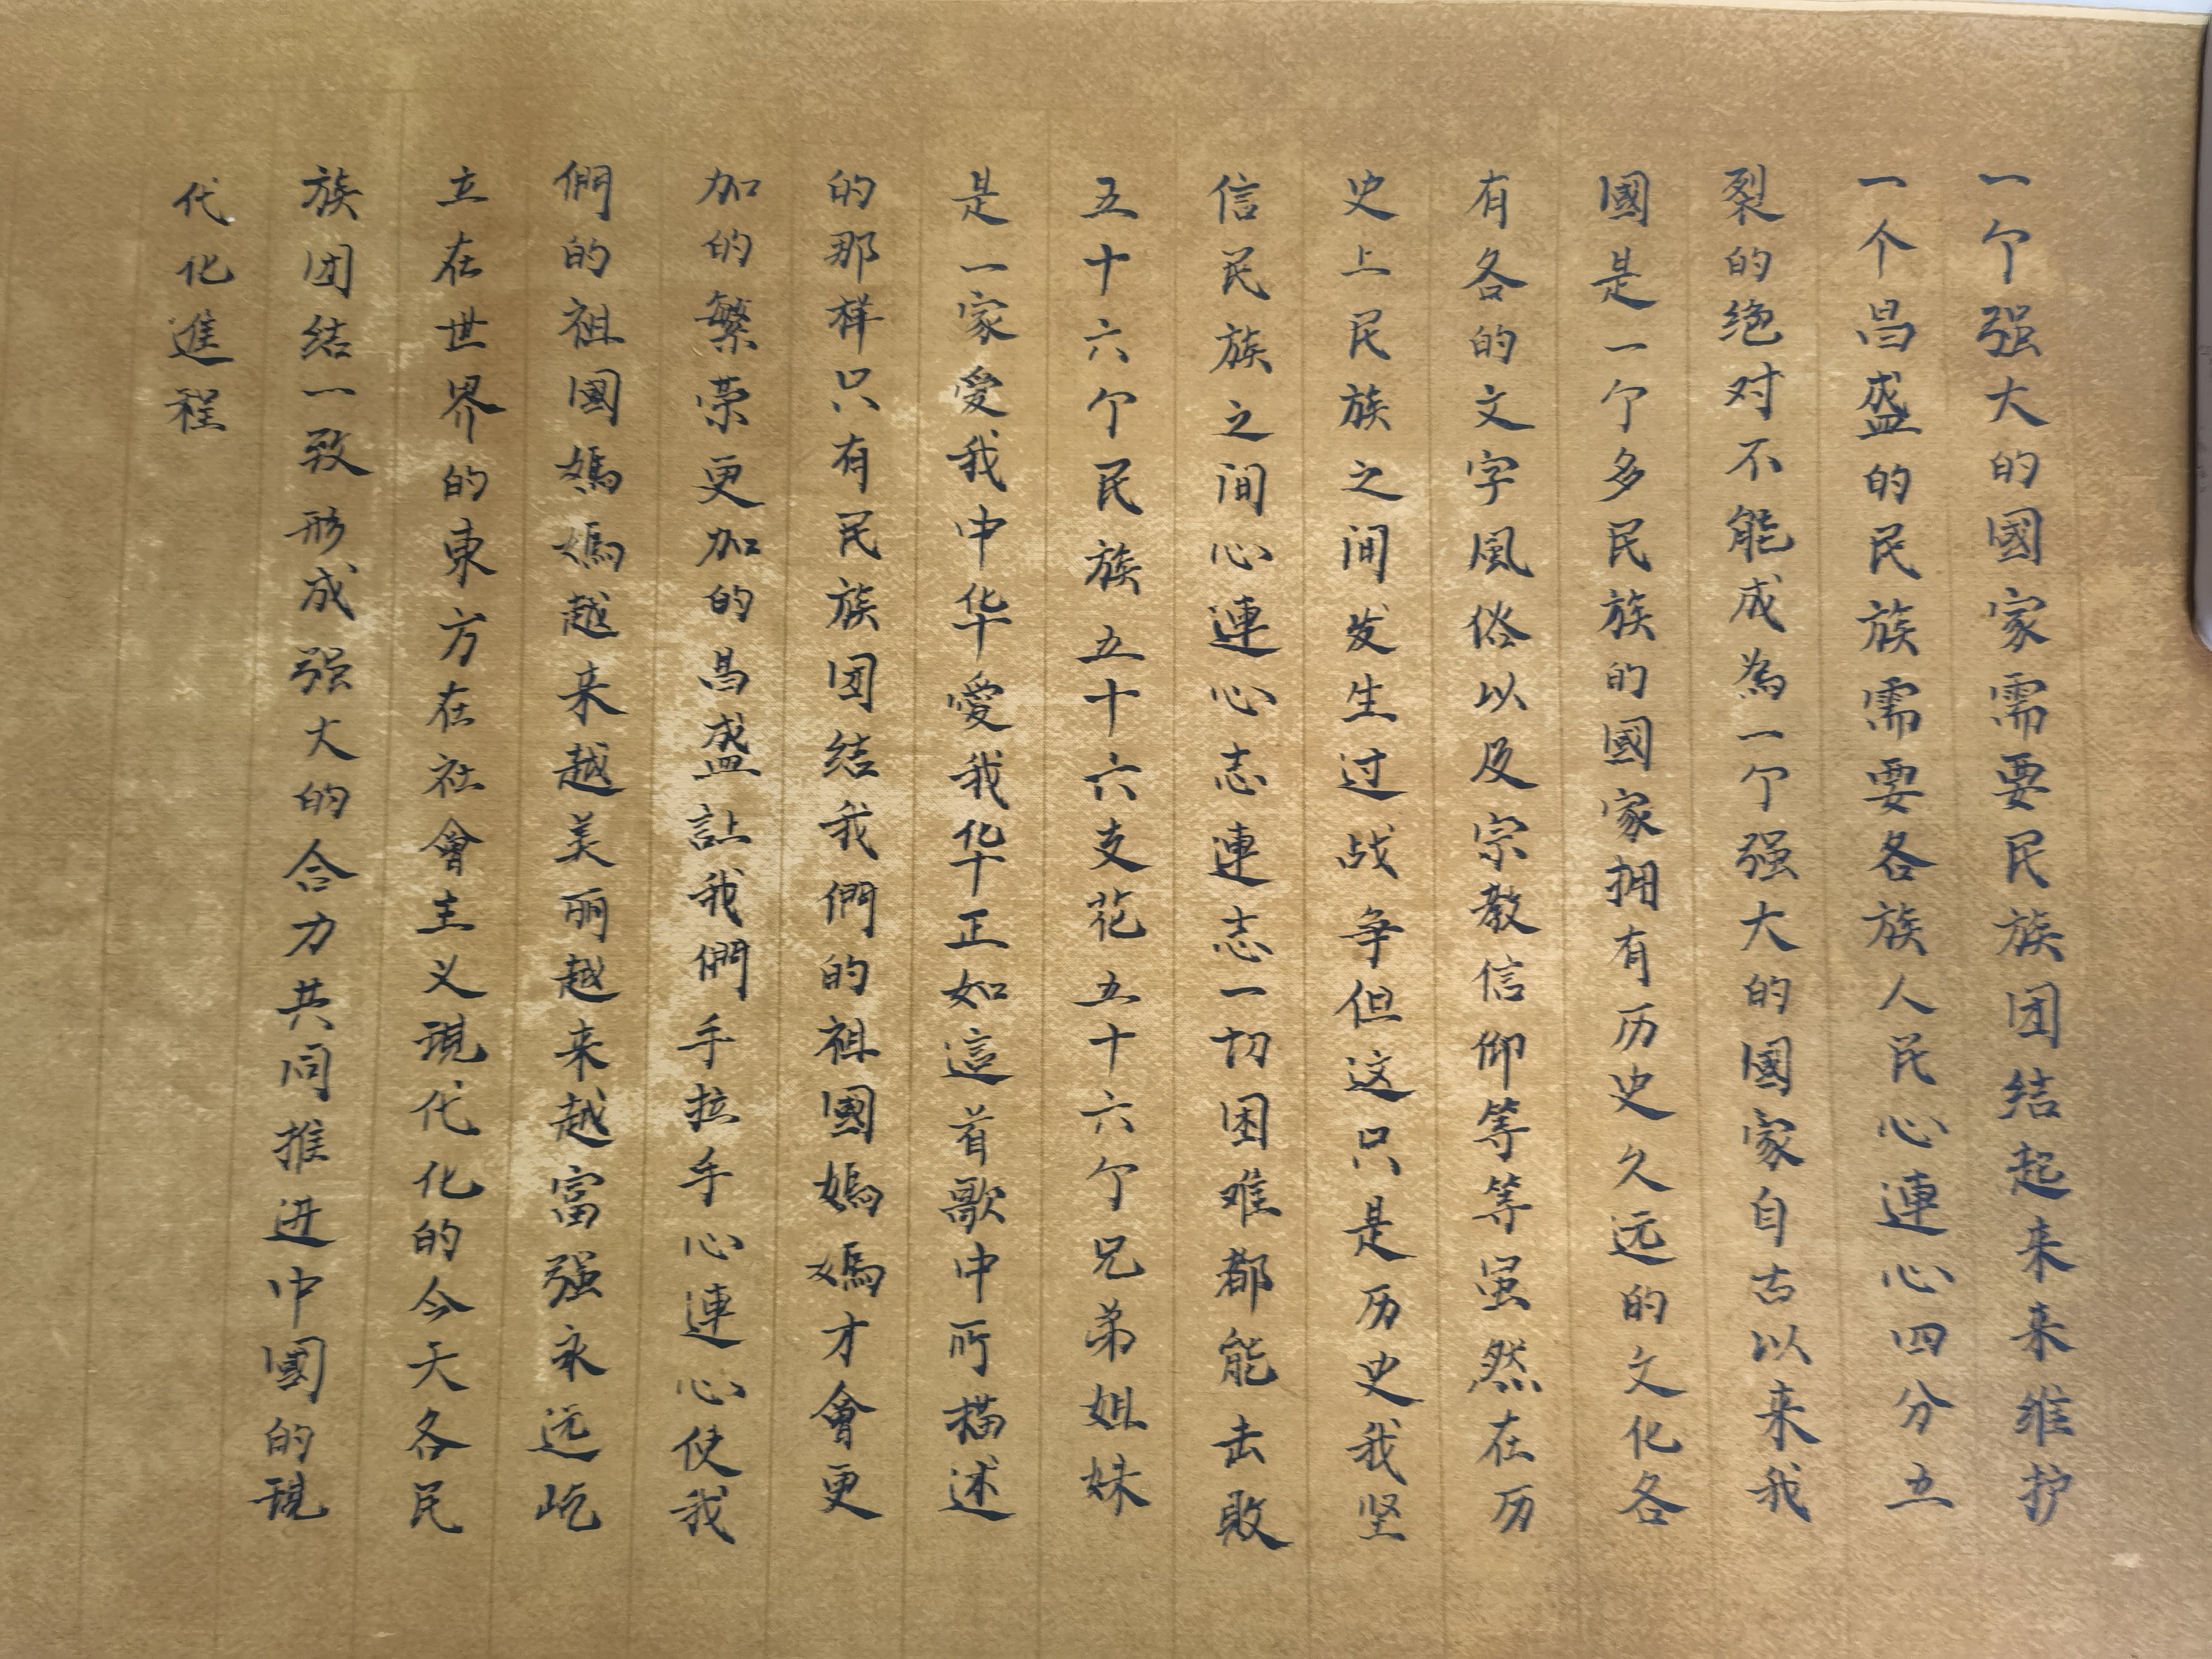 一个强大的國家需要民族团结起来来维护
一个昌盛的民族需要各族人民心連心四分五
裂的绝对不能成為一个强大的國家自古以来我
國是一个多民族的國家拥有历史久远的文化各
有各的文字風俗以及宗教信仰等等虽然在历
史上民族之间发生过战争但这只是历史我坚
信民族之间心連心志連志一切困难都能击败
五十六个民族五十六支花五十六个兄弟姐妹
是一家愛我中华愛我华正如這首歌中所描述
的那样只有民族团结我們的祖國媽媽才會更
加的繁荣更加的昌盛让我們手拉手心連心使我
們的祖國媽媽越来越美丽越来越富强永远屹
立在世界的東方在社會主义現代化的今天各民
族团结一致形成强大的合力共同推进中國的現
代化進程